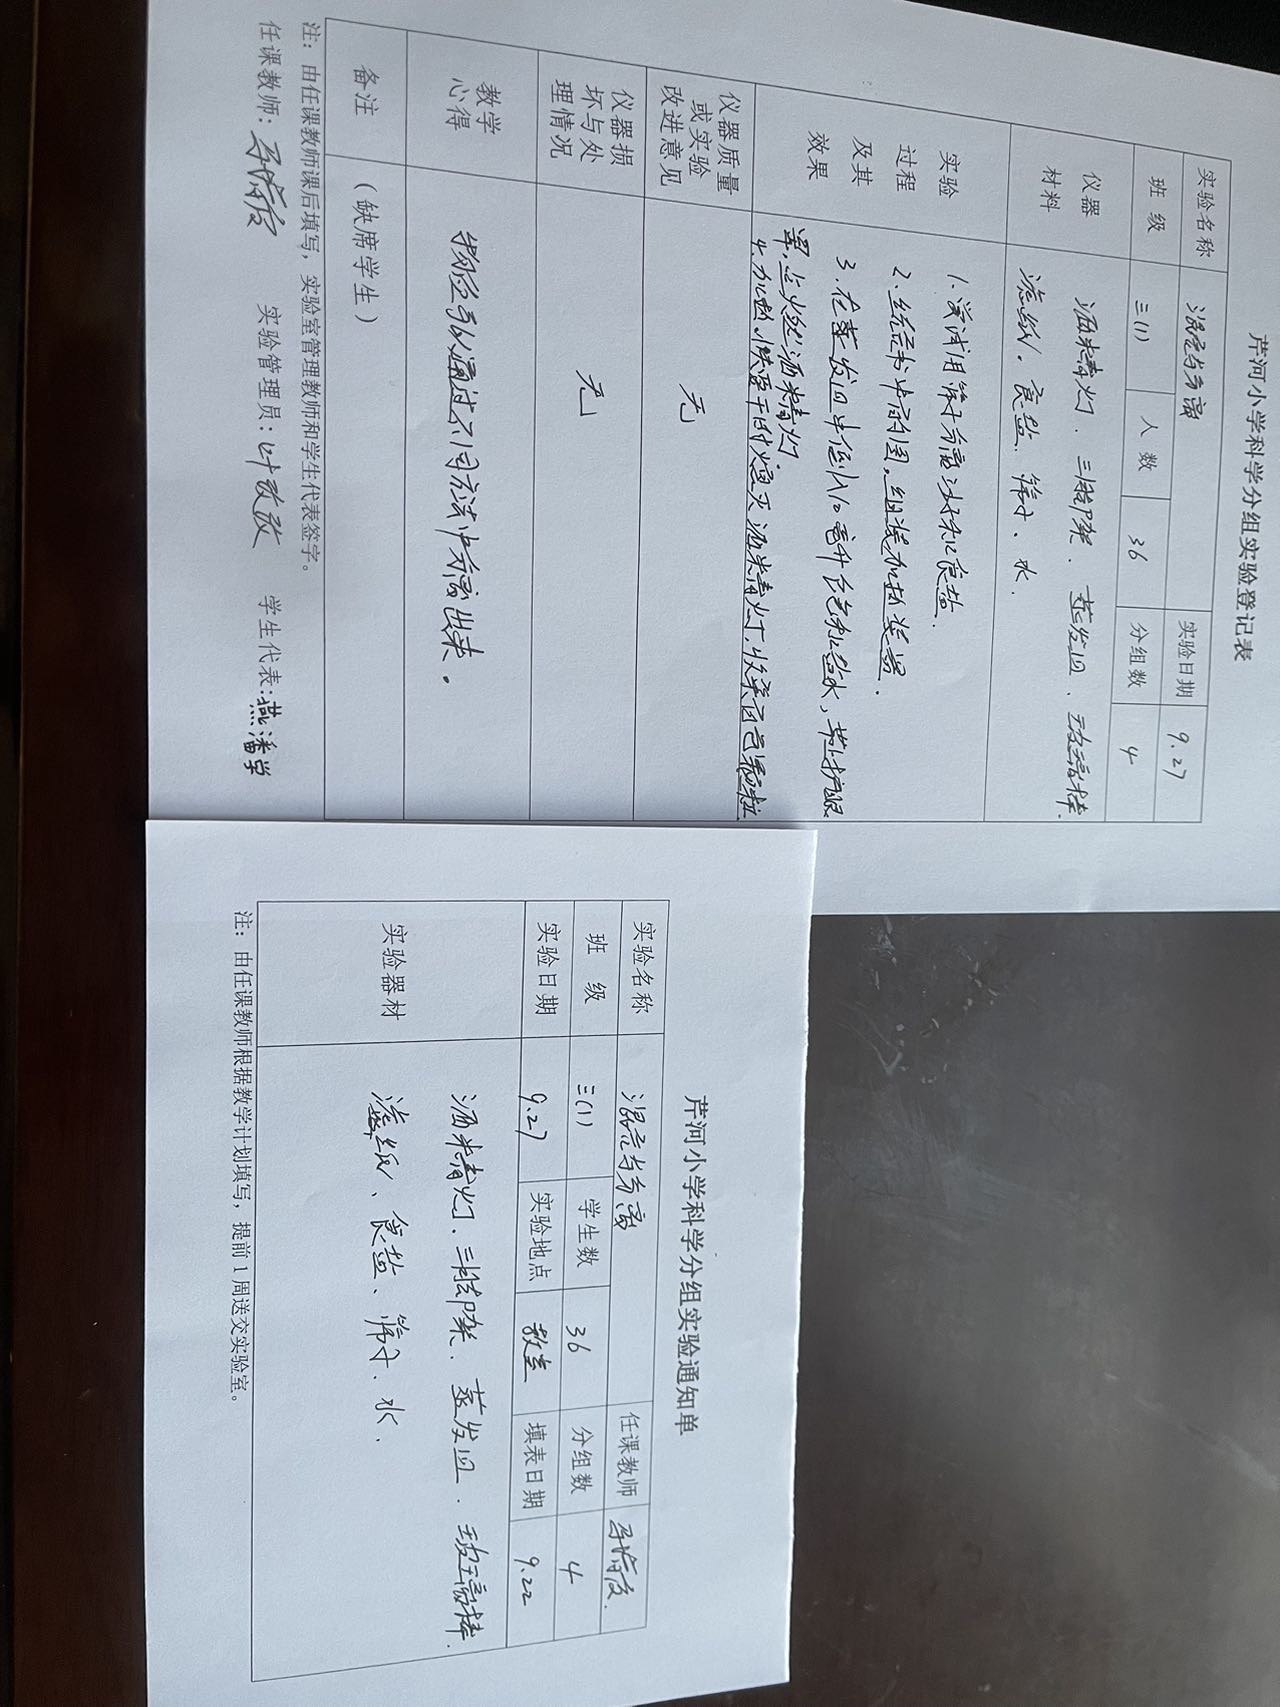 芹河小学科学分组实验登记表
实验名称 混合与分离 实验日期 9.27
班 级 三(1) 人 数 36 分组数 4
仪器
材料
酒精灯、三脚架、蒸发皿、玻璃棒、
滤纸、食盐、筛子、水.
实验
过程
及其
效果
1.尝试用筛子分离沙和食盐.
2.结合书中的图,组装加热装置.
3.在蒸发皿中倒入10毫升食和盐水,带上护眼
罩,点燃酒精灯
4.加热,快要干时熄灭酒精灯,收集白色颗粒
仪器质量
或实验
改进意见
无
仪器损
坏与处
理情况
无
教学
心得
物质可以通过不同方法中分离出来.
备注 (缺席学生)
注:由任课教师课后填写,实验室管理教师和学生代表签字。
任课教师: 实验管理员:叶改改 学生代表:燕潘学
芹河小学科学分组实验通知单
实验名称 混合与分离 任课教师
班 级 三(1) 学生数 36 分组数 4
实验日期 9.27 实验地点 教室 填表日期 9.22
实验器材
酒精灯、三脚架、蒸发皿、玻璃棒.
滤纸、食盐、筛子、水.
注:由任课教师根据教学计划填写,提前1周送交实验室。